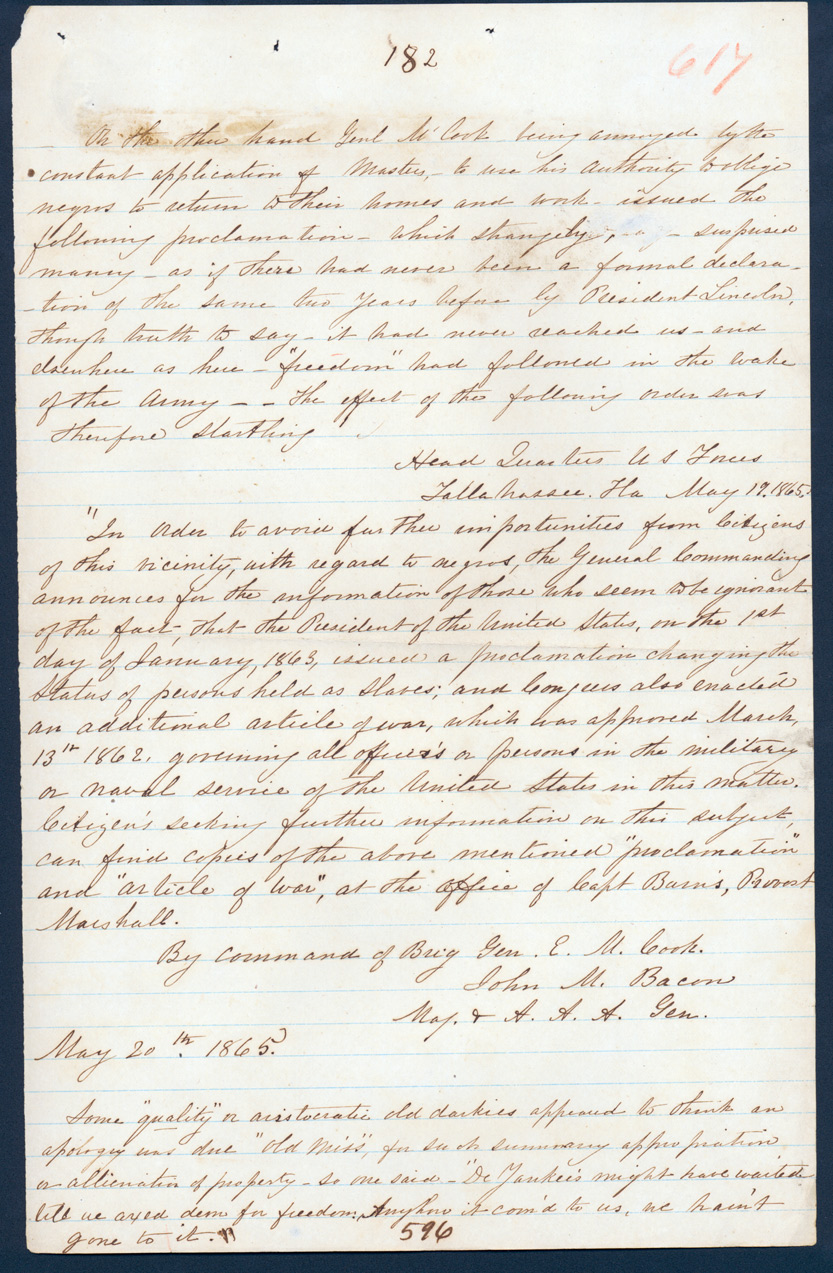 182
617
On the other hand Genl McCook being annoyed by the
constant application of Masters, - to use his authority to oblige
negros to return to their homes and work - issued the
following proclamation - which strangely, - surprised
many - as if there had never been a formal declara-
-tion of the same two years before by President Lincoln,
though truth to say - it had never reached us - and
elsewhere as here - "freedom" had followed in the wake
of the Army - - The effect of the following order was
therefore startling
Head Quarters U S Forces
Tallahassee. Fla May 19. 1865.
"In order to avoid further importunities from Citizens
of this vicinity, with regard to negros, the General Commanding
announces for the information of those who seem to be ignorant
of the fact, that the President of the United States, on the 1st
day of January, 1863, issued a proclamation changing the
Status of persons held as slaves; and Congress also enacted
an additional article of war, which was approved March,
13th 1862. governing all officers or persons in the military
or naval service of the United States in this matter.
Citizen's seeking further information on this subject
can find copies of the above mentioned "proclamation"
and "article of war", at the office of Capt Barns, Provost
Marshall.
By command of Brig Gen. E. M. Cook.
John M. Bacon
Maj. & A. A. A. Gen.
May 20th. 1865.
Some "quality" or aristocratic old darkies appeared to think an
apology was due "old miss", for such summary appropriation
or allienation of property - so one said - "De Yankee's might have waited
till we axed dem for freedom. Anyhow it com'd to us, we hain't
gone to it."
596